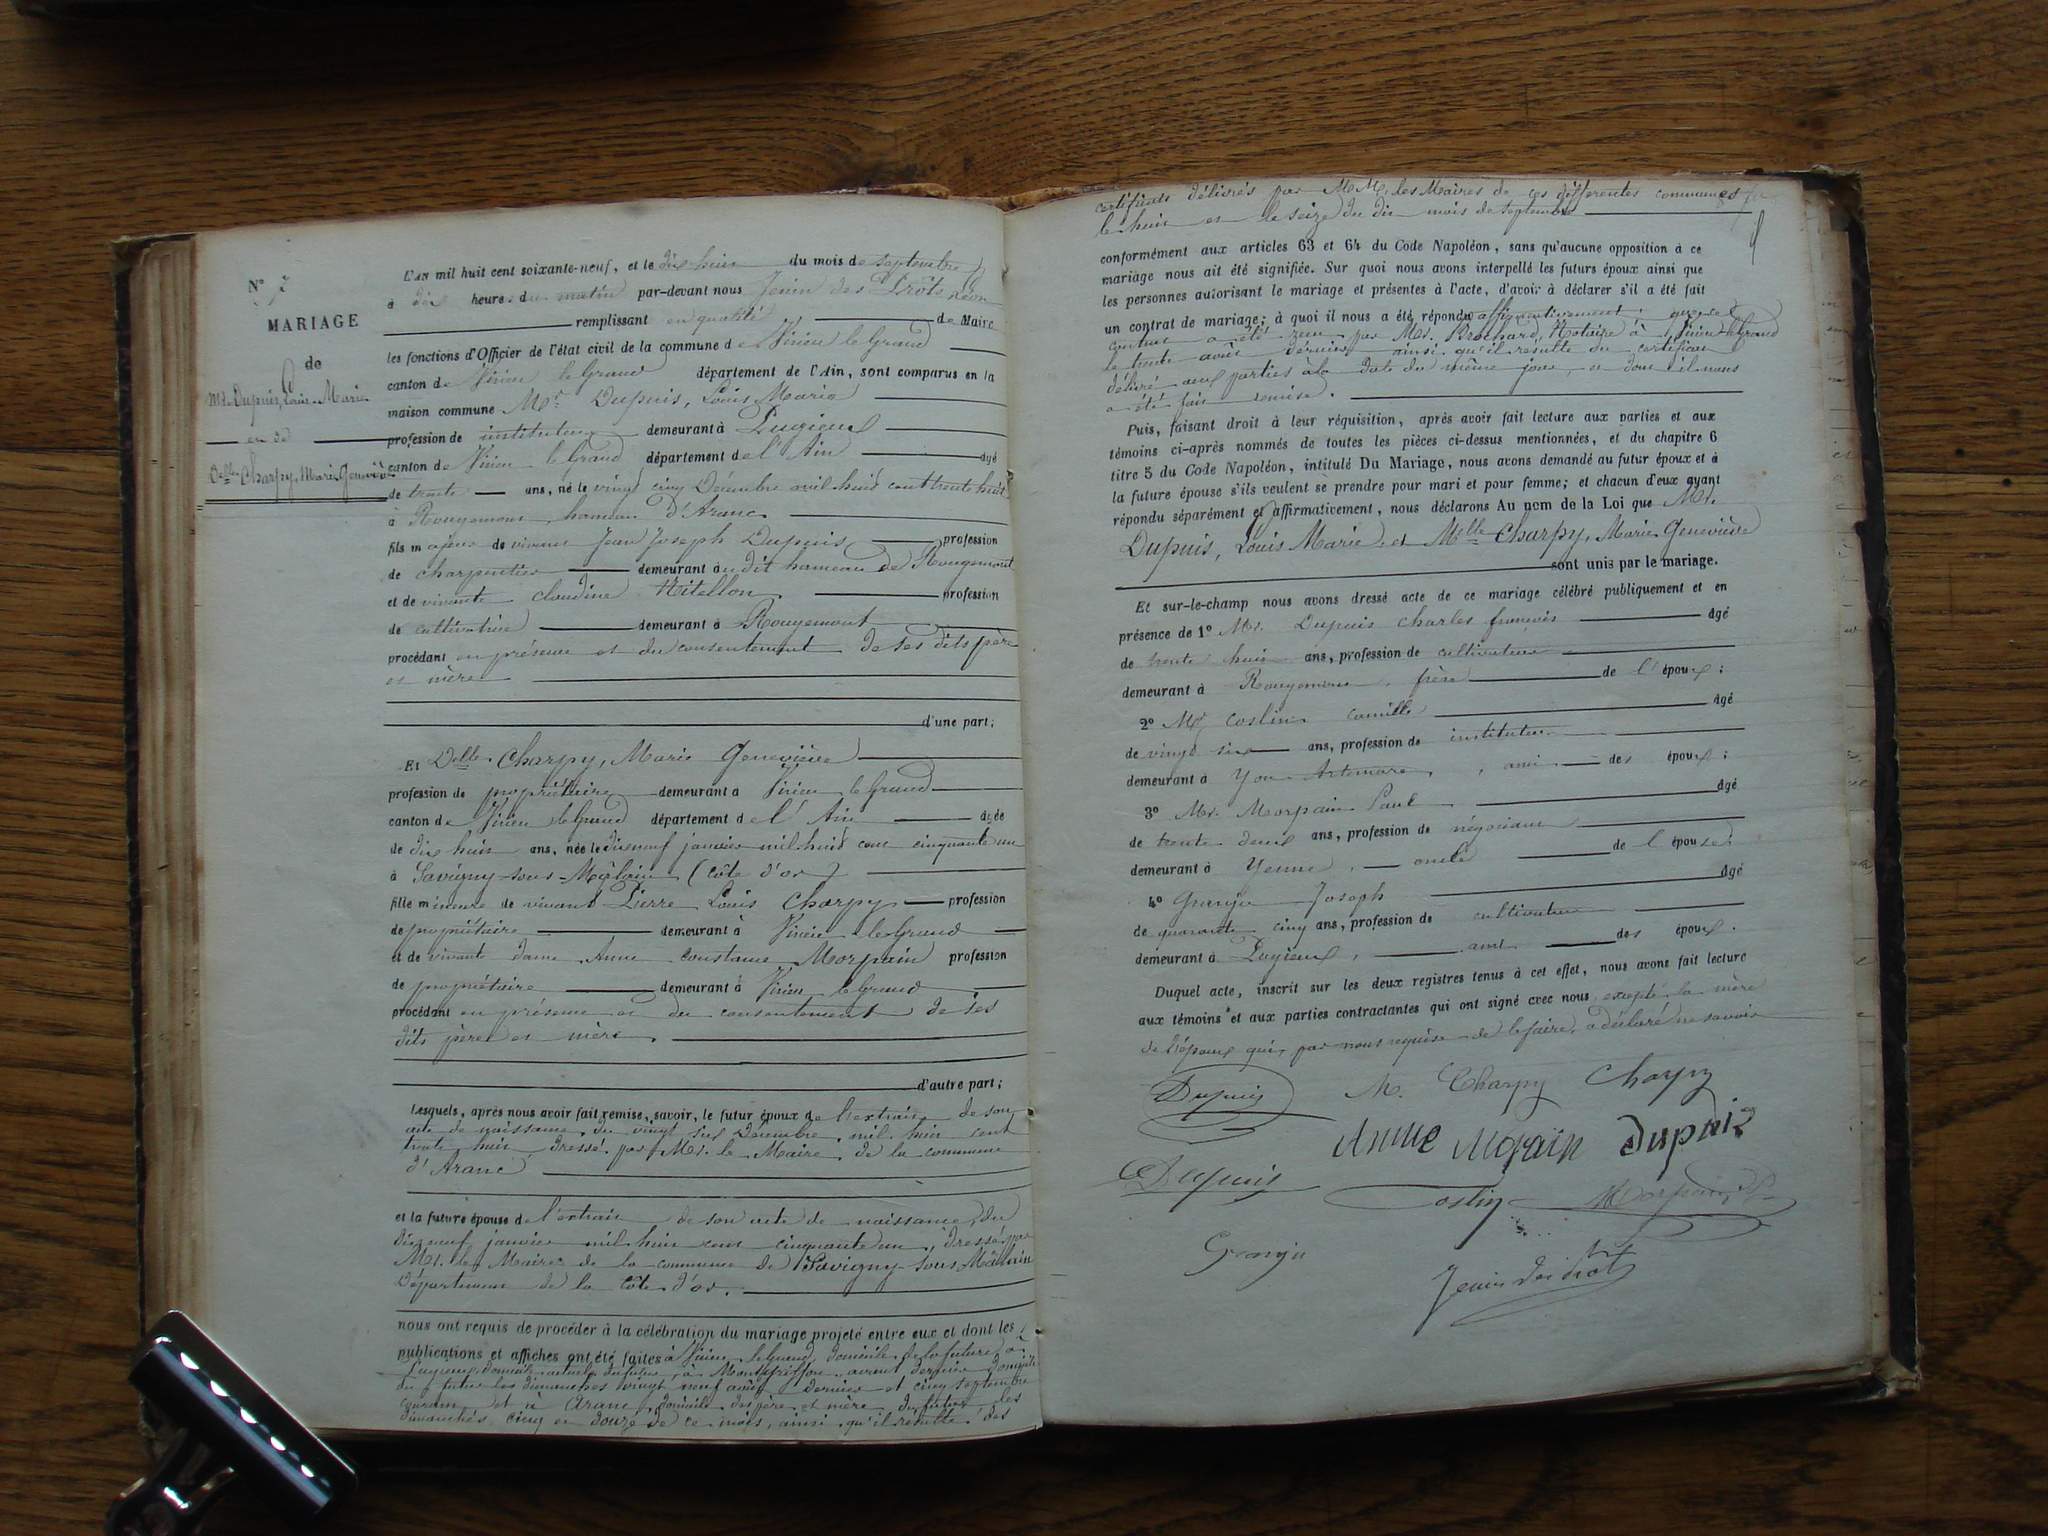 N° 7
MARIAGE
de
Mr. Dupuis, Louis Marie
et de
Delle Charpy, Marie Geneviève
L'AN mil huit cent soixante-neuf, et le dix huit du mois de septembre
à dix heures du matin par-devant nous Jenin des Prots
remplissant en qualité de Maire
les fonctions d'Officier de l'état civil de la commune de Virieu le Grand
canton de Virieu le Grand département de l'Ain, sont comparus en la
maison commune Mr Dupuis, Louis Marie
profession de instituteur demeurant à Lugieux
canton de Virieu le Grand département de l'Ain âgé
de trente ans, né le vingt cinq Décembre mil huit cent trente huit
à Rougemont, hameau d'Aranc
fils majeur de vivant Jean Joseph Dupuis profession
de charpentier demeurant audit hameau de Rougemont
et de vivante Claudine Nitellon profession
de cultivatrice demeurant à Rougemont
procédant en présence et du consentement de ses dits père
et mère
d'une part;
Et Delle Charpy, Marie Geneviève
profession de propriétaire demeurant à Virieu le Grand
canton de Virieu le Grand département de l'Ain âgée
de dix huit ans, née le dix neuf janvier mil huit cent cinquante un
à Savigny-sous-Mâlain (côte d'or)
fille mineure de vivant Pierre Louis Charpy profession
de propriétaire demeurant à Virieu le Grand
et de vivante dame Anne Constance Morpain profession
de propriétaire demeurant à Virieu le Grand
procédant en présence et du consentement de ses
dits père et mère.
d'autre part;
Lesquels, après nous avoir fait remise, savoir, le futur époux de l'extrait de son
acte de naissance, du vingt six Décembre mil huit cent
trente huit, dressé par Mr. le Maire de la commune
d'Aranc
et la future épouse de l'extrait de son acte de naissance, du
dix neuf janvier mil huit cent cinquante un, dressé par
Mr. le Maire de la commune de Savigny-sous-Mâlain
Département de la Côte d'or.
nous ont requis de procéder à la célébration du mariage projeté entre eux et dont les
publications et affiches ont été faites à Virieu le Grand, domicile de la future, à
Lugieux, domicile actuel du futur, à Montgriffon, avant dernier domicile
du futur les dimanches vingt neuf août dernier et cinq septembre
courant, et à Aranc, domicile des père et mère du futur les
dimanches cinq et douze de ce mois, ainsi qu'il résulte des
certificats délivrés par MM. les Maires de ces différentes communes
le huit et le seize du dit mois de septembre
conformément aux articles 63 et 64 du Code Napoléon, sans qu'aucune opposition à ce
mariage nous ait été signifiée. Sur quoi nous avons interpellé les futurs époux ainsi que
les personnes autorisant le mariage et présentes à l'acte, d'avoir à déclarer s'il a été fait
un contrat de mariage; à quoi il nous a été répondu affirmativement, que ce
contrat a été reçu par Mr. Brochard, Notaire à Virieu le Grand
le trente août dernier ainsi qu'il résulte du certificat
délivré aux parties à la date du même jour, et dont il nous
a été fait remise.
Puis, faisant droit à leur réquisition, après avoir fait lecture aux parties et aux
témoins ci-après nommés de toutes les pièces ci-dessus mentionnées, et du chapitre 6
titre 5 du Code Napoléon, intitulé Du Mariage, nous avons demandé au futur époux et à
la future épouse s'ils veulent se prendre pour mari et pour femme; et chacun d'eux ayant
répondu séparément et affirmativement, nous déclarons Au nom de la Loi que Mr.
Dupuis, Louis Marie et Melle Charpy, Marie Geneviève
sont unis par le mariage.
Et sur-le-champ nous avons dressé acte de ce mariage célébré publiquement et en
présence de 1° Mr. Dupuis Charles françois âgé
de trente huit ans, profession de cultivateur
demeurant à Rougemont, frère de l'époux;
2° Mr. Coslin Camille âgé
de vingt six ans, profession de instituteur
demeurant à Yon-Artemare, ami des époux;
3° Mr. Morpain Paul âgé
de trente deux ans, profession de négociant
demeurant à Yenne, oncle de l'épouse;
4° Granju Joseph âgé
de quarante cinq ans, profession de cultivateur
demeurant à Lugieux, ami des époux.
Duquel acte, inscrit sur les deux registres tenus à cet effet, nous avons fait lecture
aux témoins et aux parties contractantes qui ont signé avec nous excepté la mère
de l'époux qui, par nous requise de le faire, a déclaré ne savoir
Dupuis M. Charpy Charpy
Anne Mopain Dupuis
C Dupuis Coslin Morpain P.
Granju
Jenin des Prots